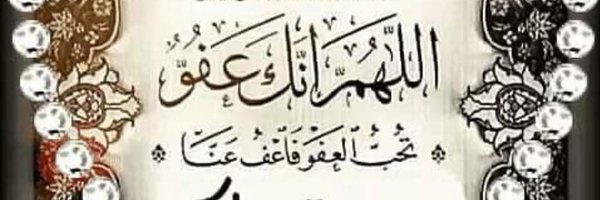 اللَّهُمَّ إنَّكَ عَفُوٌّ
تُحِبُّ العَفْوَ فَاعْفُ عَنَّا